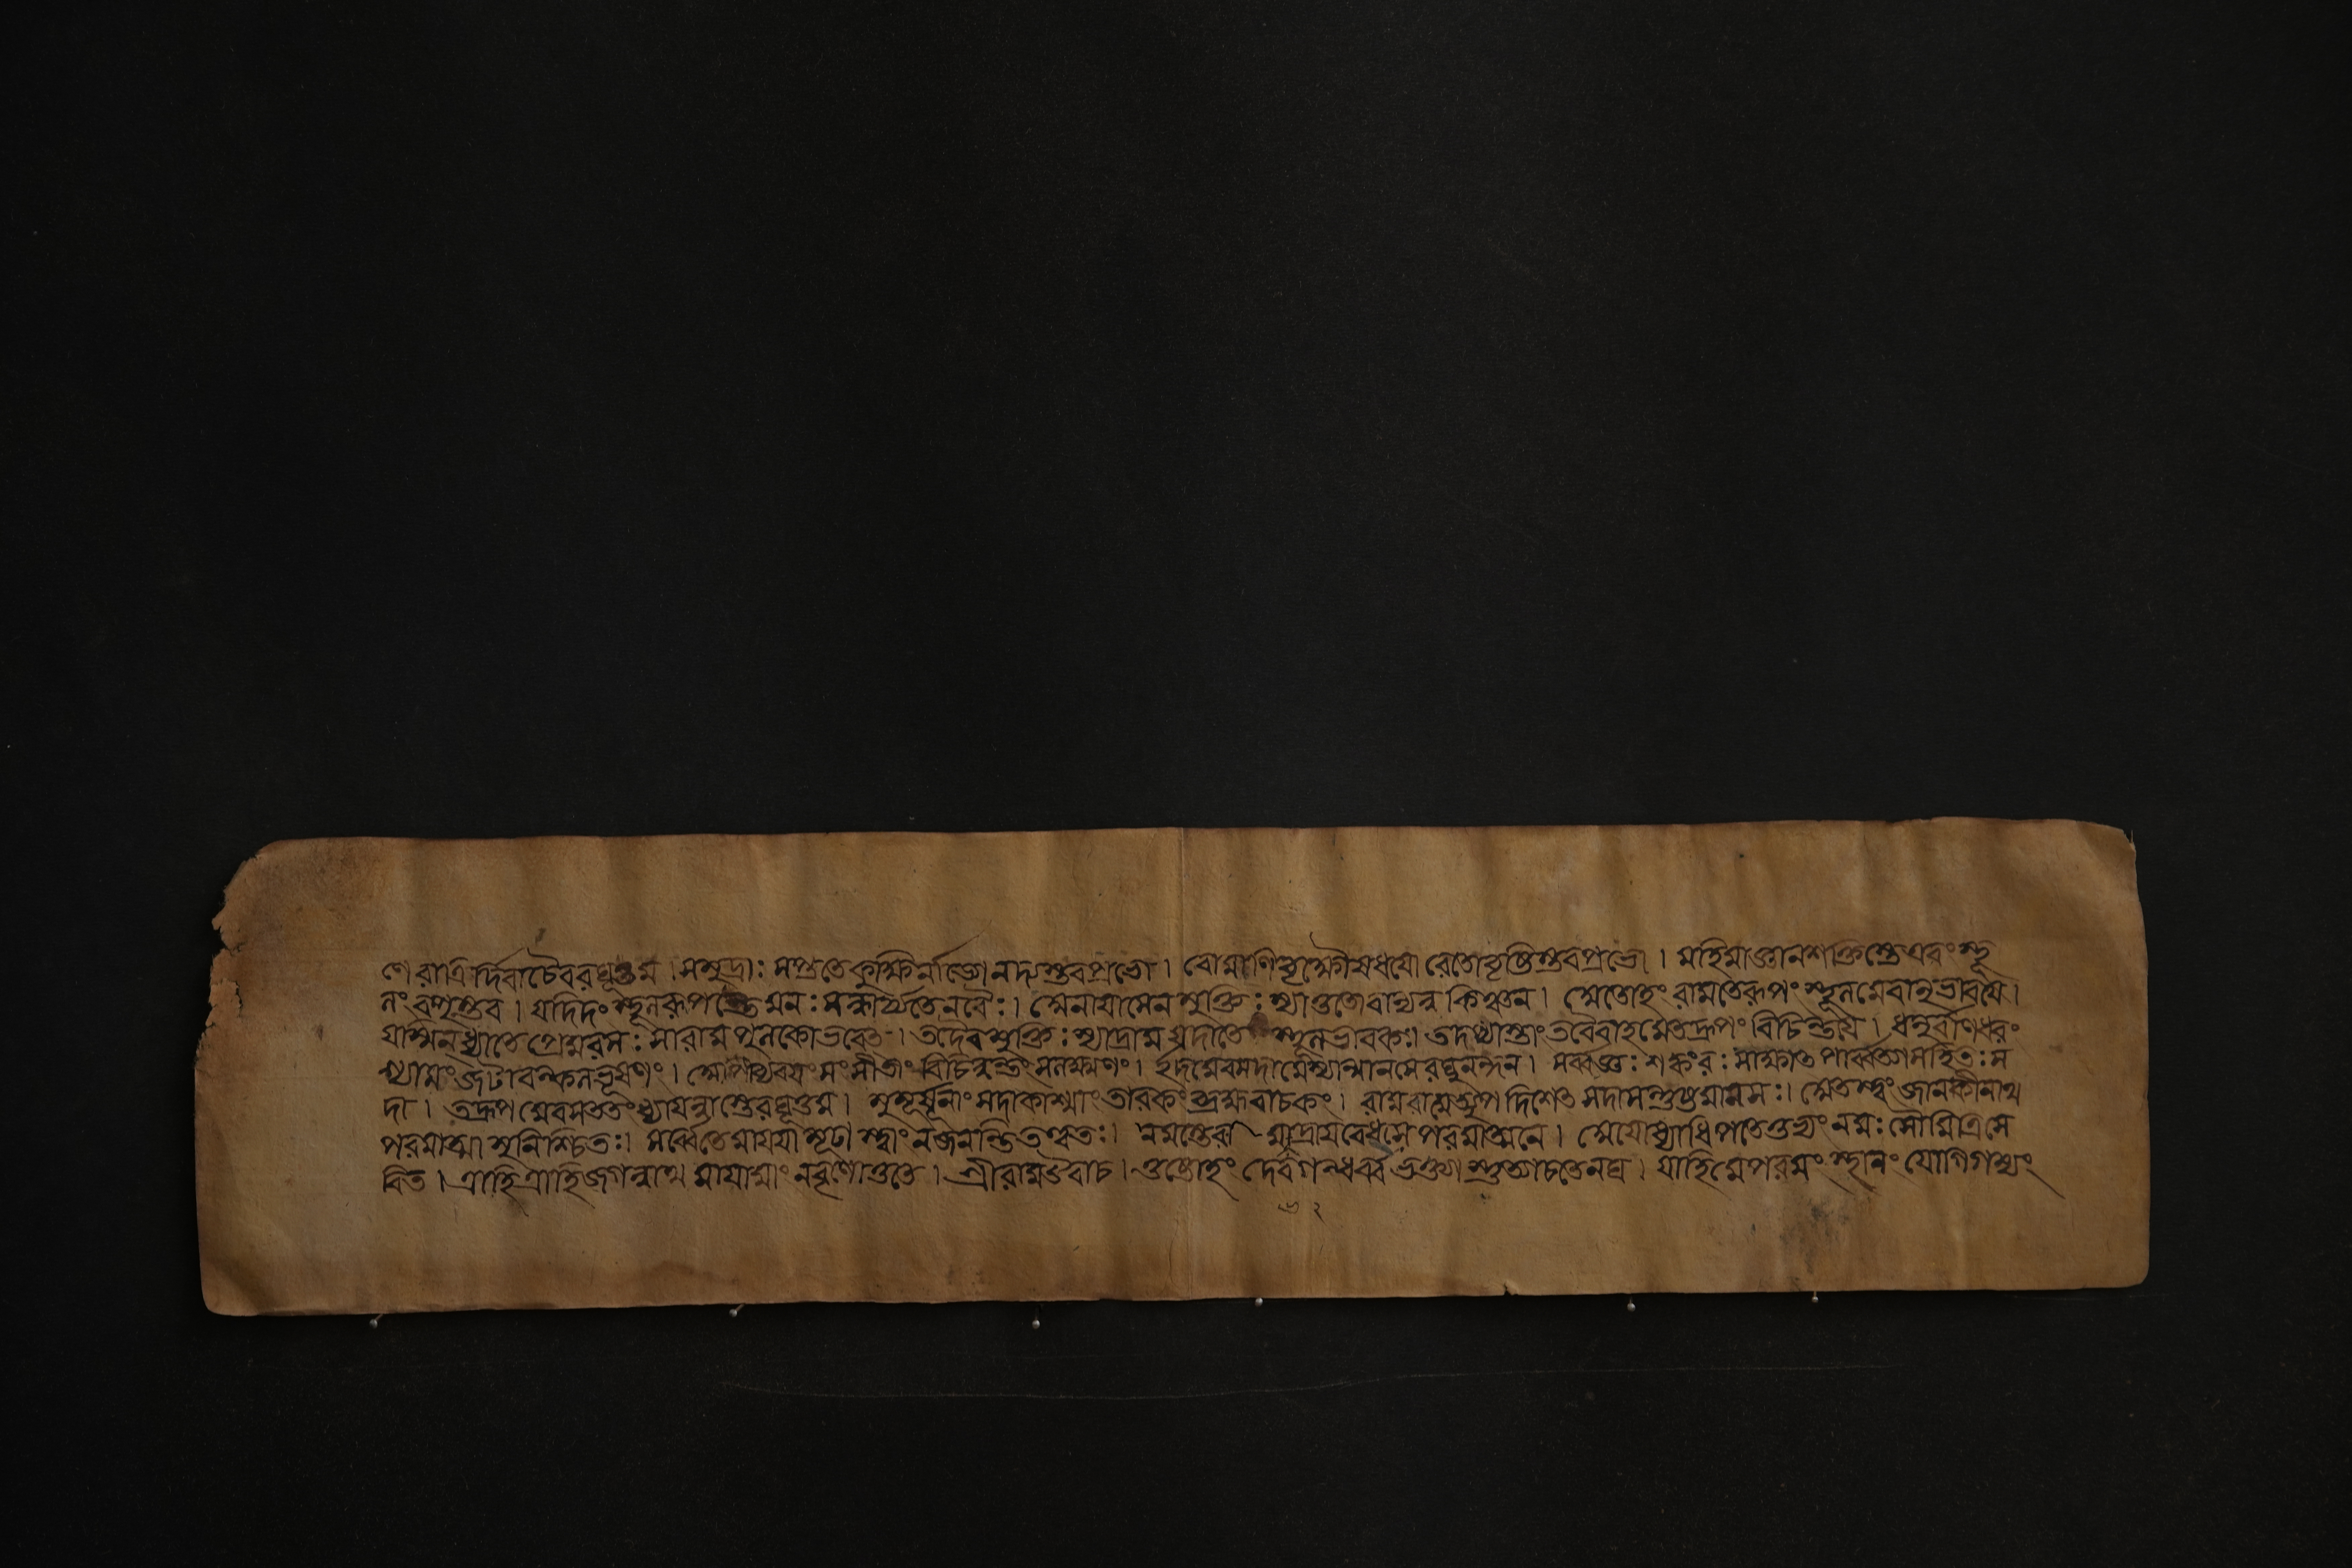 ণে রাত্রির্দিবাচৈবরঘুত্তম । সমুদ্রাঃ সপ্ততেকুক্ষির্নাড্যোনদ্যস্তবপ্রভো । রোমাণিবৃক্ষৌষধযো রেতোবৃষ্টিস্তবপ্রভো । মহিমাজ্ঞানশক্তিস্তেএবং স্থূ
লং বপুস্তব । যদিদং স্থূলরূপন্তে মনঃ সন্ধার্য্যতেনরৈঃ। অনাযাসেন মুক্তিঃ স্যাত্ততোবান্যন্ন কিঞ্চন । অতোহং রামতেরূপং স্থূলমেবানুভাবযে ।
যস্মিন্ধ্যাতে প্রেমরসঃ সরোমপুলকোভবেত্ । তদৈবমুক্তিঃ স্যাদ্রাম যদাতে স্থূলভাবকঃ। তদপ্যাস্তাং তবৈবাহমেতদ্রূপং বিচিন্তয়ে । ধনুর্বাণধরং
শ্যামং জটাবল্কলভূষণং । অপীব্যবযসং সীতাং বিচিন্বন্তং সলক্ষ্মণং । ইদমেবসদামেস্যান্মানসেরঘুনন্দন । সর্ব্বজ্ঞঃ শঙ্করঃ সাক্ষাত্ পার্ব্বত্যাসহিতঃ স
দা । ত্বদ্রূপমেবসততং ধ্যাযন্নাস্তেরঘুত্তম । মুমূর্ষূনাং সদাকাশ্যাং তারকং ব্রহ্মবাচকং । রামরামেত্যুপদিশেত্ সদাসন্তুষ্টমানসঃ। অতস্ত্বং জানকীনাথ
পরমাত্মা সুনিশ্চিতঃ। সর্ব্বেতেমাযযামূঢা স্ত্বাং নজানন্তিতত্ত্বতঃ। নমস্তেরামভদ্রাযবেধসে পরমাত্মনে । অযোধ্যাধিপতেতুভ্যং নমঃ সৌমিত্রিসে
বিত । ত্রাহিত্রাহিজগন্নাথ মাযামাং নাবৃণোতুতে । শ্রীরামউবাচ । তুষ্টোহং দেবগন্ধর্ব্ব ভক্ত্যাস্তুত্যাচতেনঘ । যাহিমেপরমং স্থানং যোগিগম্যং
৬২